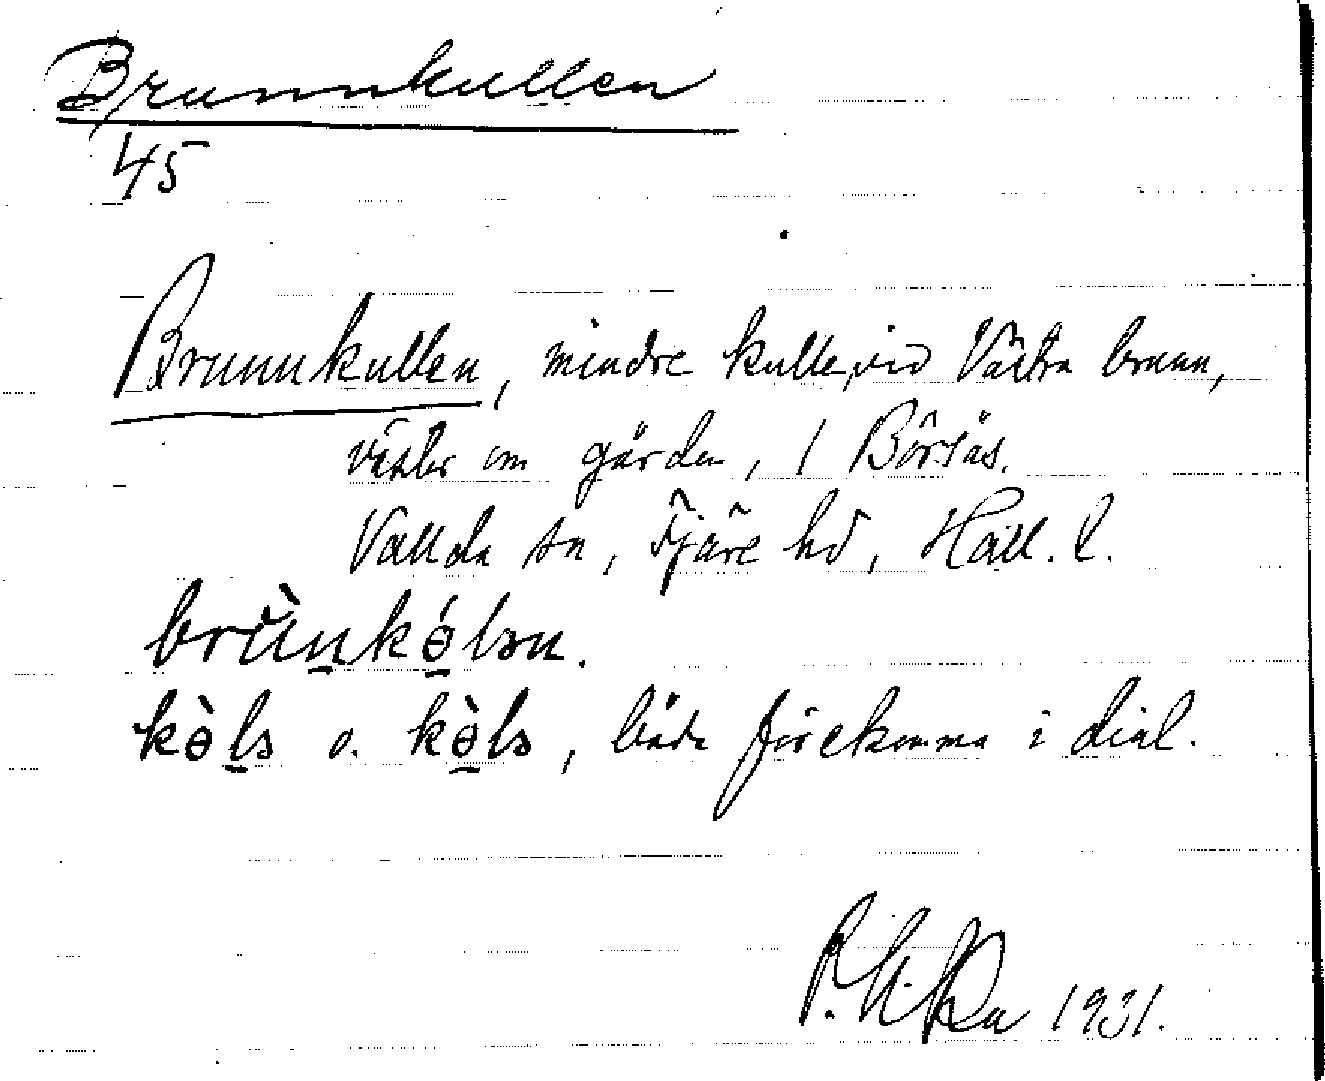 Brunnkullen
45
Brunnkullen, mindre kulle, vid Västra brunn,
väster om gården, 1 Börsås.
Vallda sn, Fjäre hd, Hall. l.
brùnkələn.
kə̀ls o. kə̀ls, båda förekomma i dial.
1931.